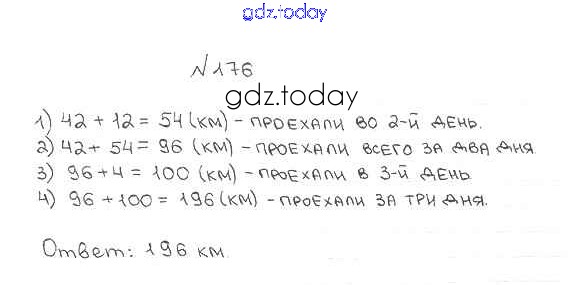 gdz.today
№176
gdz.today
1) 42 + 12 = 54 (км) - проехали во 2-й день.
2) 42 + 54 = 96 (км) - проехали всего за два дня
3) 96 + 4 = 100 (км) - проехали в 3-й день
4) 96 + 100 = 196 (км) - проехали за три дня.
Ответ: 196 км.